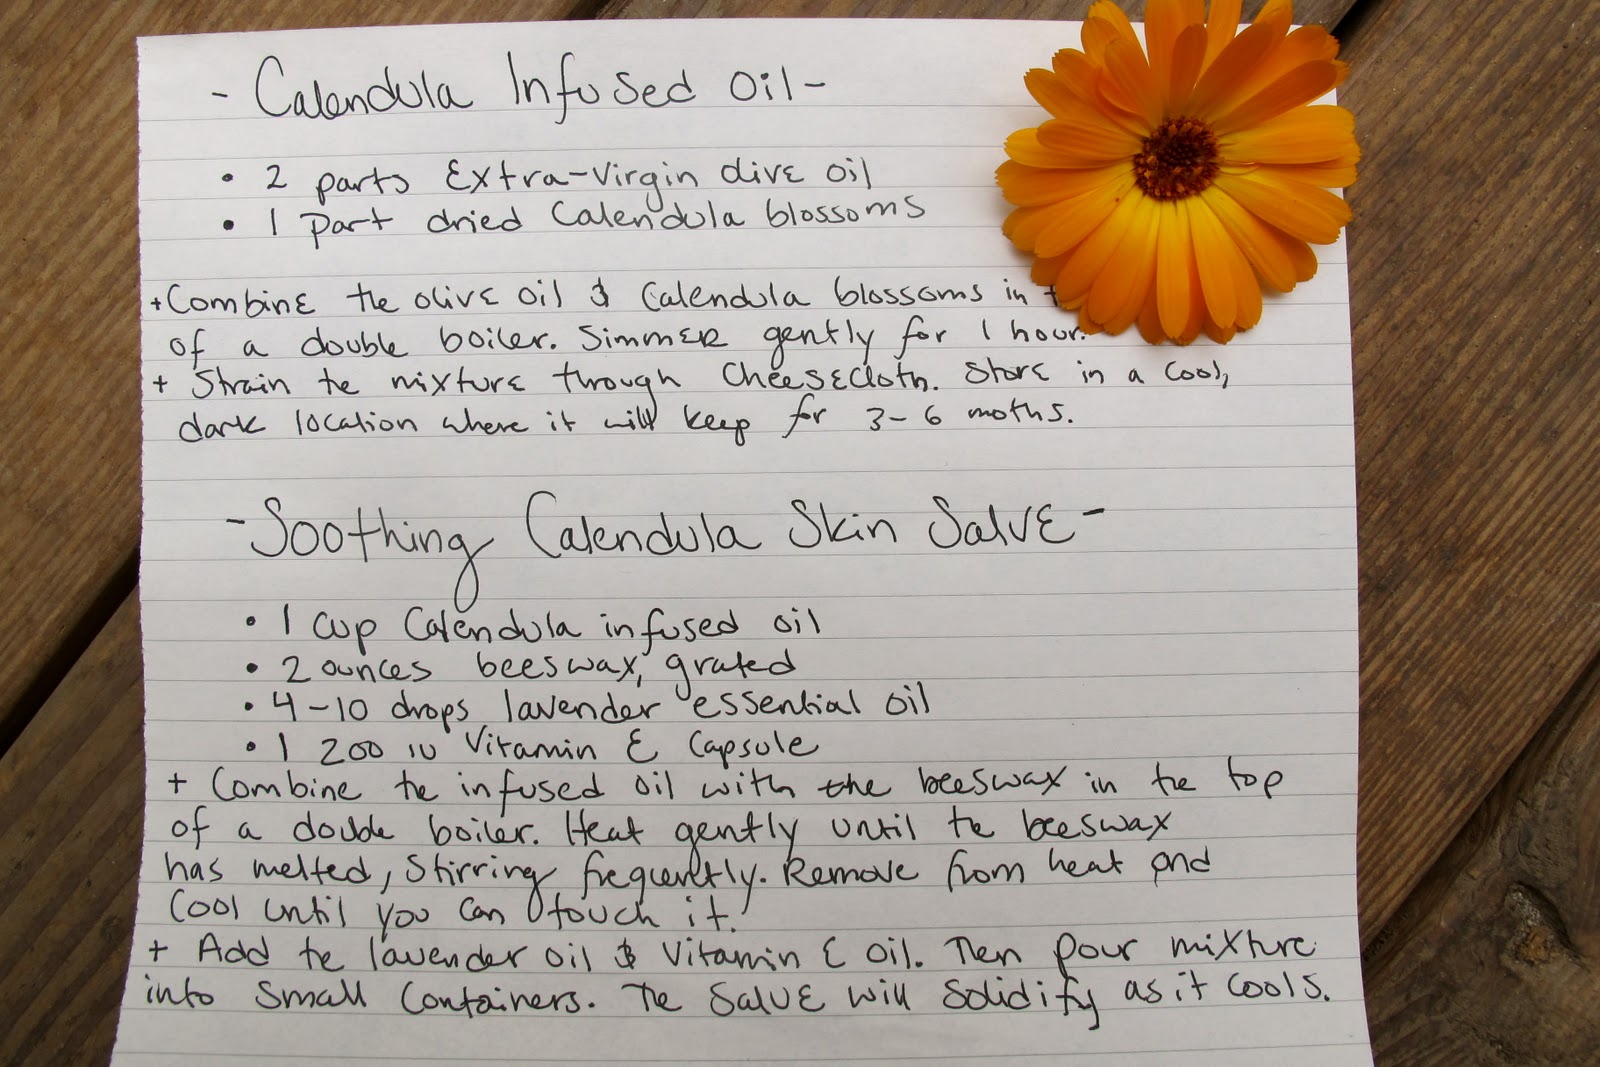 - Calendula Infused Oil -
• 2 parts Extra-Virgin olive oil
• 1 part dried Calendula blossoms
+ Combine the olive oil & Calendula blossoms in
of a double boiler. Simmer gently for 1 hour.
+ Strain the mixture through Cheesecloth. Store in a cool,
dark location where it will keep for 3-6 moths.
- Soothing Calendula Skin Salve -
• 1 cup Calendula infused oil
• 2 ounces beeswax, grated
• 4-10 drops lavender essential oil
• 1 200 IU Vitamin E Capsule
+ Combine the infused oil with the beeswax in the top
of a double boiler. Heat gently until the beeswax
has melted, Stirring frequently. Remove from heat and
Cool until you can touch it.
+ Add the lavender oil & Vitamin E oil. Then pour mixture
into small containers. The Salve will solidify as it cools.